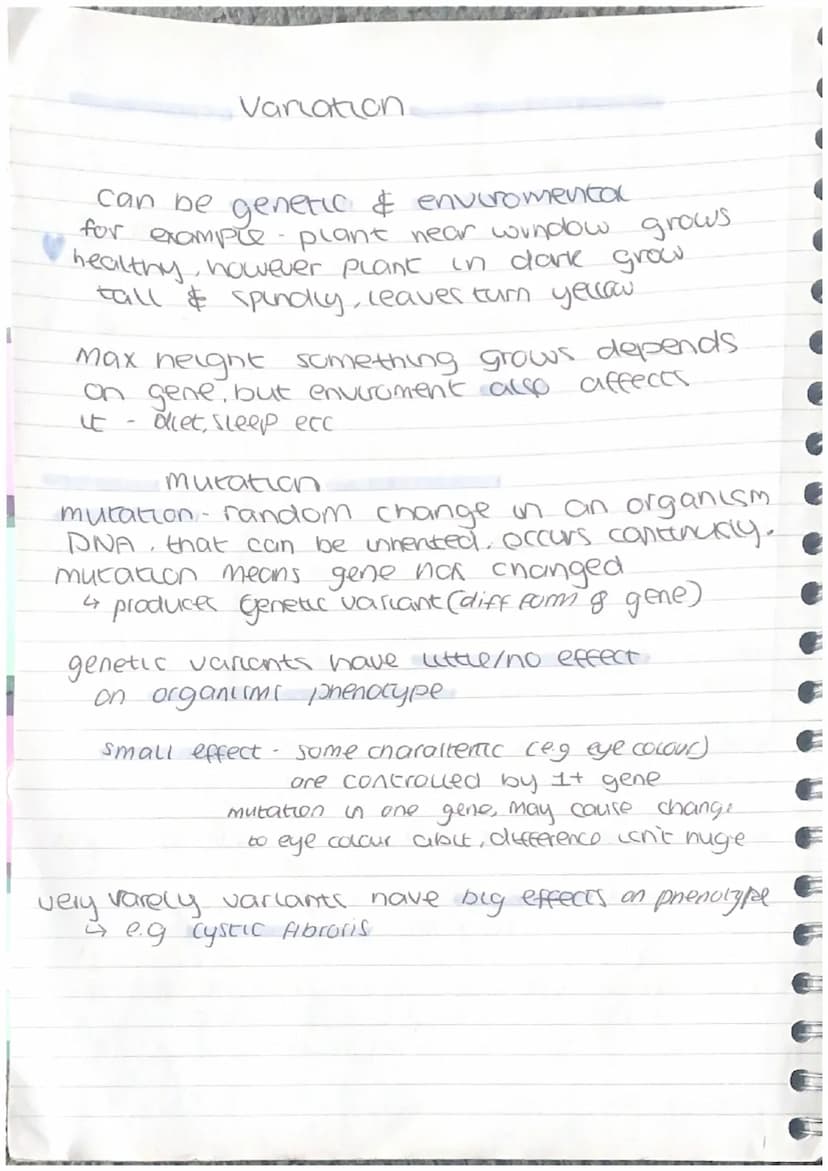 Variation
can be genetic & enviromental
for example - plant near window grows
healthy, however plant in dark grow
tall & spindly, leaves turn yellow
Max height something grows depends
on gene, but enviroment also affects
it - diet, sleep etc
mutation
mutation - random change in an organism
DNA, that can be inherited. occurs continusly.
mutation means gene has changed
↳ produces genetic variant (diff form of gene)
genetic variants have little/no effect
on organisms phenotype
small effect - some charalteric (e.g eye colour)
are controlled by 1+ gene
mutation in one gene, may cause change
to eye colour abit, difference isn't huge
very rarely variants have big effects on phenotype
↳ e.g cystic fibrosis